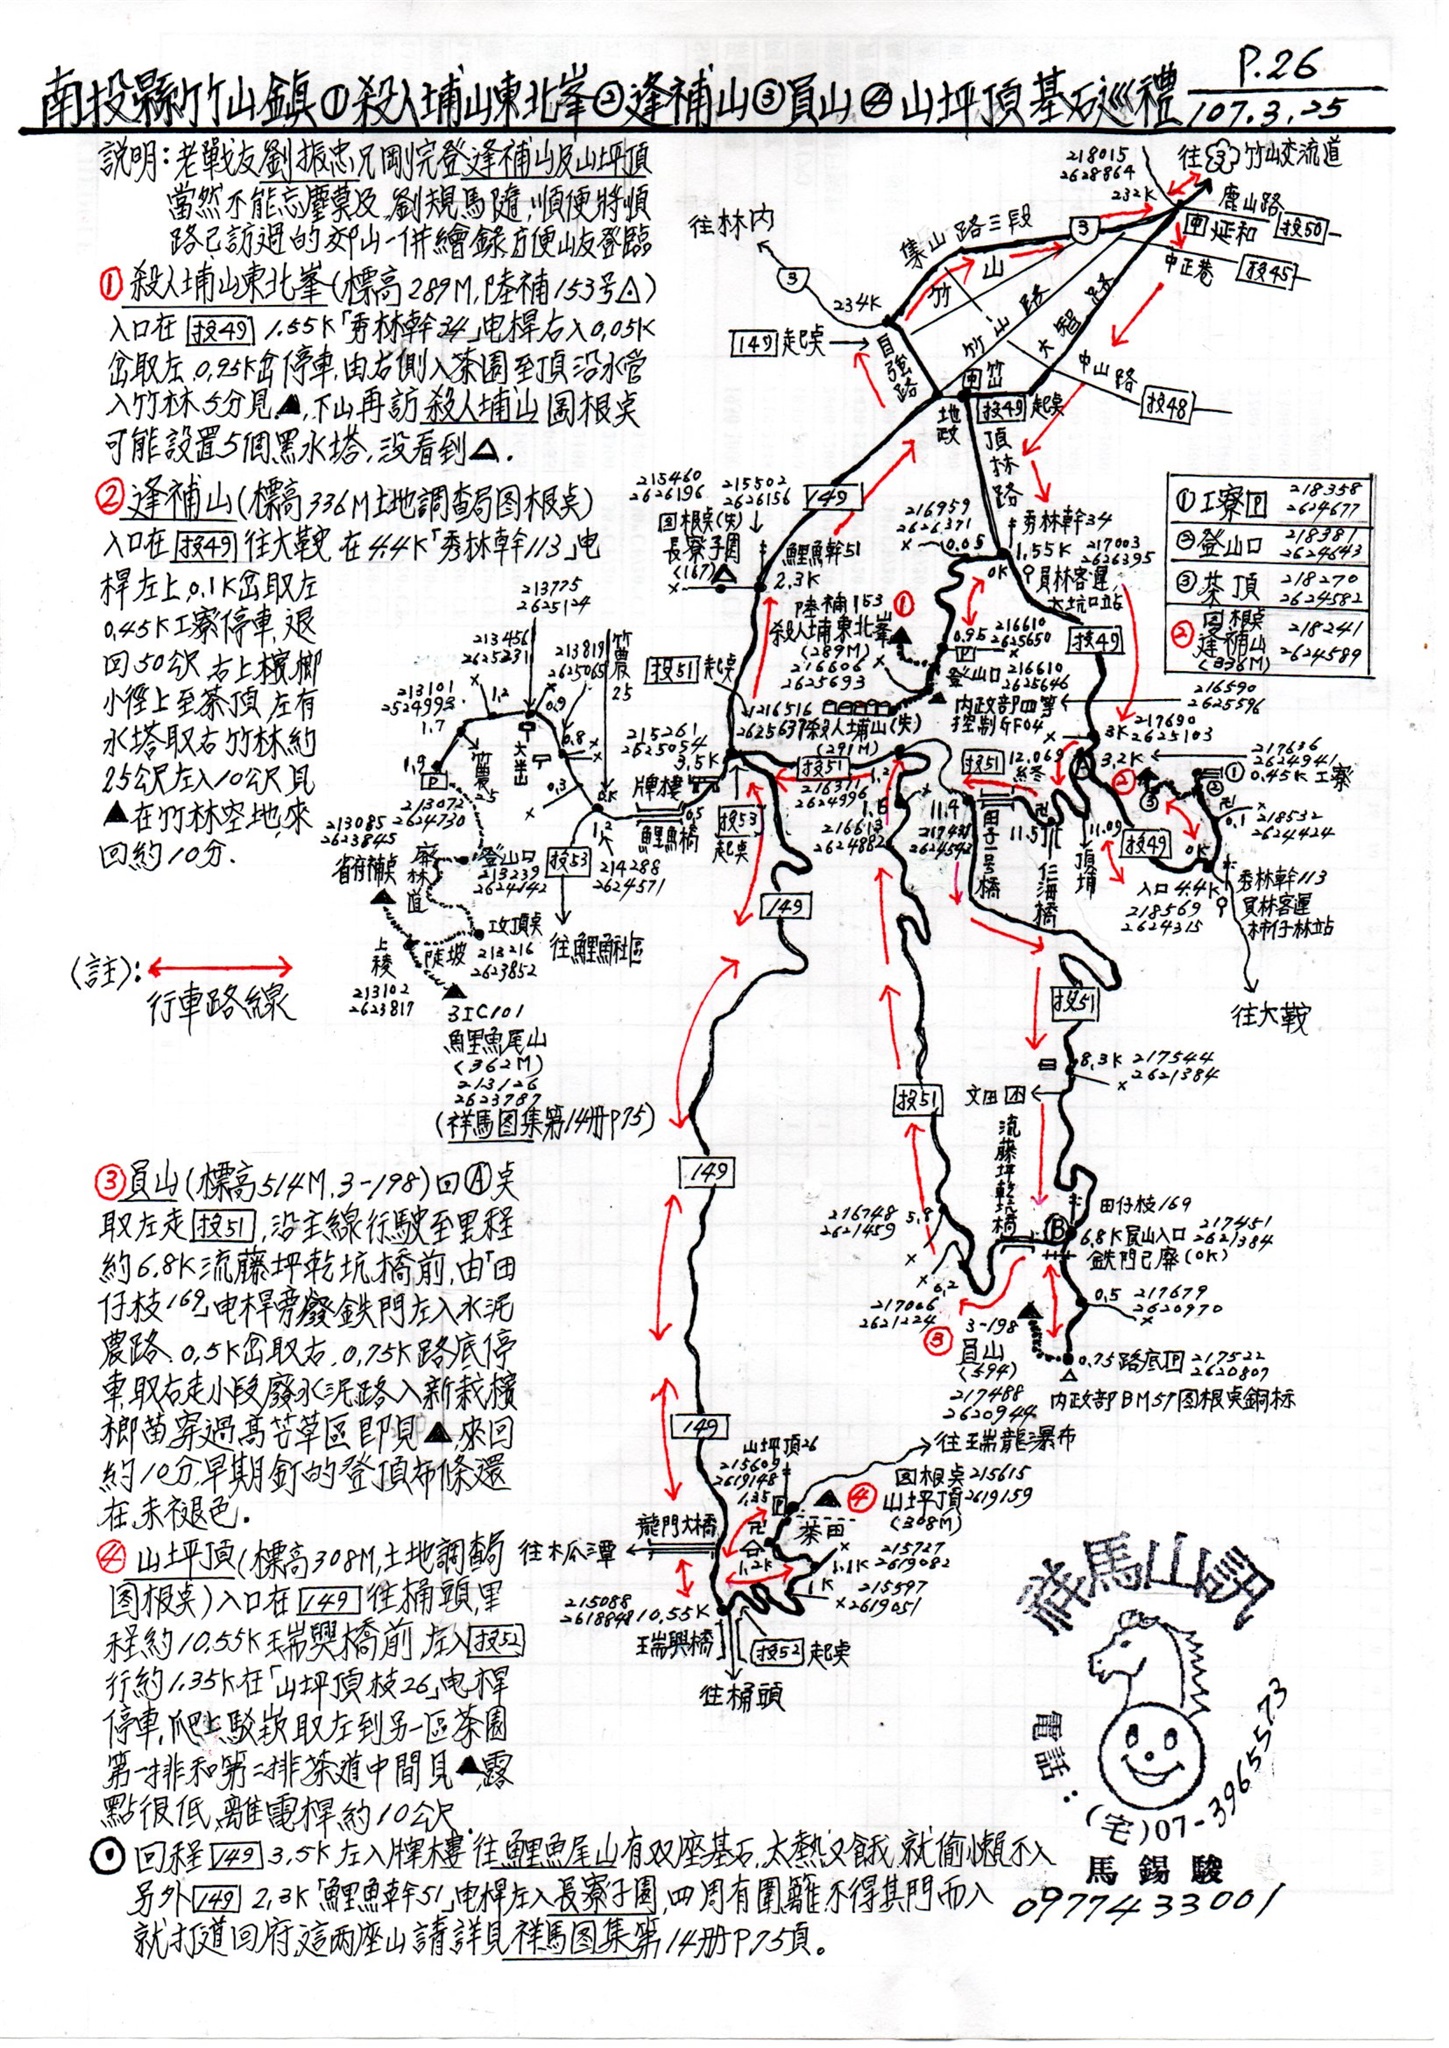 P.26
南投縣竹山鎮①殺人埔山東北峯②逢補山③員山④山坪頂基石巡禮
107.3.25
説明:老戰友劉振忠兄剛完登逢補山及山坪頂
當然不能忘塵莫及,劉規馬隨,順便將順
路已訪過的郊山一併繪錄方便山友登臨
①殺人埔山東北峯(標高289M,陸補153号△)
入口在 投49 1.55K「秀林幹34」电桿右入0.05K
岔取左.0.95K岔停車,由右側入茶園至頂沿水管
入竹林5分見▲,下山再訪殺人埔山圖根桌
可能設置5個黑水塔,没看到△.
②逢補山(標高336M土地調查局图根桌)
入口在 投49 往大鞍 在4.4K「秀林幹113」电
桿左上,0.1K岔取左
0.45K工寮停車,退
回50公尺右上檳榔
小徑上至茶頂左有
水塔取右竹林約
25公尺左入10公尺見
▲在竹林空地,來
回約10分.
(註):
行車路線
③員山(標高514M.3-198)回Ⓐ桌
取左走 投51,沿主線行駛至里程
約6.8K流藤坪乾坑橋前,由「田
仔枝169」电桿旁廢鉄門左入水泥
農路.0.5K岔取右.0.75K路底停
車,取右走小段廢水泥路入新栽檳
榔苗穿過高芒草區即見▲,來回
約10分,早期釘的登頂布條還
在,未褪色.
④山坪頂(標高308M,土地調查局
图根桌)入口在 149 往桶頭,里
程約10.55K瑞興橋前左入 投52
行約1.35K在「山坪頂枝26」电桿
停車,爬上駁崁取左到另一區茶園
第一排和第二排茶道中間見▲,露
點很低,離電桿約10公尺.
⊙回程 149 3.5K左入牌樓往鯉魚尾山有双座基石,太熱又餓,就偷懶不入
另外 149 2.3K「鯉魚幹51」电桿左入長寮子園,四周有圍籬不得其門而入
就打道回府,這兩座山請詳見祥馬图集第14册P75頁。
218015
2628864
往 3 竹山交流道
232K
鹿山路
延和 投50
中正巷 投45
集山路三段
3
往林内
3
234K
149 起桌
自強路
竹山路
大智路
中山路
投48
地政
投49 起桌
頂林路
149
215460
2626196
215502
2626156
图根桌(失)
長寮子園
(167)
鯉魚幹51
2.3K
216959
2626371
0.05
秀林幹34
1.55K
217003
2626395
0K
員林客運
大坑口站
①工寮 218358 2624677
②登山口 218381 2624643
③茶頂 218270 2624582
② 图根桌 逢補山 (336M) 218241 2624589
陸補153
殺人埔東北峯
(289M)
216606
2625693
①
0.95
216610
2625650
登山口
216610
2625646
内政部四等
控制點GF04
216590
2625596
投49
投51 起桌
216516
2625637
殺人埔山(失)
(291M)
213775
2625124
213456
2625231
213819
2625065
竹農25
213101
2524993
1.7
1.2
0.9
0.8
0.3
0K
1.9
竹農25
213072
2624730
215261
2625054
3.5K
牌樓
0.5
鯉魚橋
1.2
投53
投53 起桌
214288
2624571
往鯉魚社區
213085
2623845
省府補桌
廢林道
登山口
213239
2624142
攻頂桌
213216
2623852
陡坡
上稜
213102
2623817
3IC101
鯉魚尾山
(362M)
213126
2623787
(祥馬图集第14册P75)
投51
1.2
216371
2624996
1.6
216613
2624882
投51
12.069
終
11.4
217431
2624543
11.5
田子一号橋
仁海橋
11.09
頂埔
3K
217690
2625103
3.2K
217636
2624941
0.45K 工寮
0.1
218532
2624424
0K
投49
入口 4.4K
218569
2624315
秀林幹113
員林客運
柿仔林站
往大鞍
149
投51
8.3K
217544
2621384
文田
流藤坪乾坑橋
投51
田仔枝169
Ⓑ
6.8K 員山入口
217451
2621384
鉄門已廢(0K)
216748
2621459
5.8
6.2
217006
2621224
③
3-198
員山
(594)
217488
2620944
0.5
217679
2620970
0.75 路底
217522
2620807
内政部BM57图根桌銅标
149
149
山坪頂26
215609
2619148
1.35
往瑞龍瀑布
图根桌 215615
山坪頂 2619159
(308M)
④
茶田
龍門大橋
往木瓜潭
1.2K
215727
1.1K 2619082
1K 215597
2619051
215088
2618848
10.55K
瑞興橋
投52 起桌
往桶頭
祥馬山訊
電話:
(宅)07-3965573
馬錫駿
0977433001